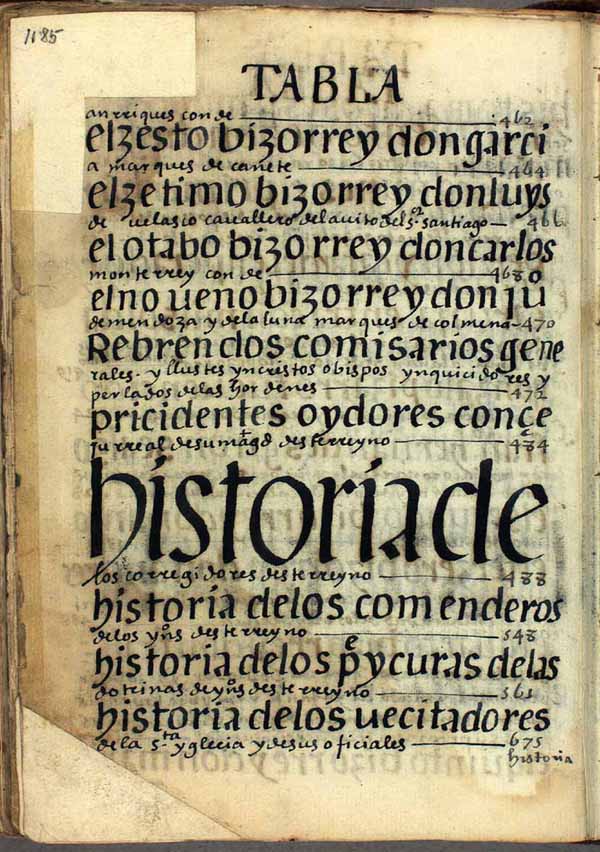 1185
TABLA
anrriques conde 462
elzesto bizorrey don garci
a marques de canete 464
elzetimo bizorrey don luys
de uelasco cauallero del auito del s. santiago 466
el otabo bizorrey don carlos
monterrey conde 468
el noueno bizorrey don ju
de mendoza y dela luna marques de colmena 470
Rebrendos comisarios gene
rales. yllustes yn cristos obispos ynquicidores y
perlados delas hordenes 472
pricidentes oydores conçe
ju rreal de su mag.d desterreyno 484
historia de
los corregidores desterreyno 488
historia delos comenderos
delos yos desterreyno 548
historia delos pe y curas delas
dotrinas de yos desterreyno 561
historia delos uecitadores
de la sta yglecia y de sus oficiales 675
historia